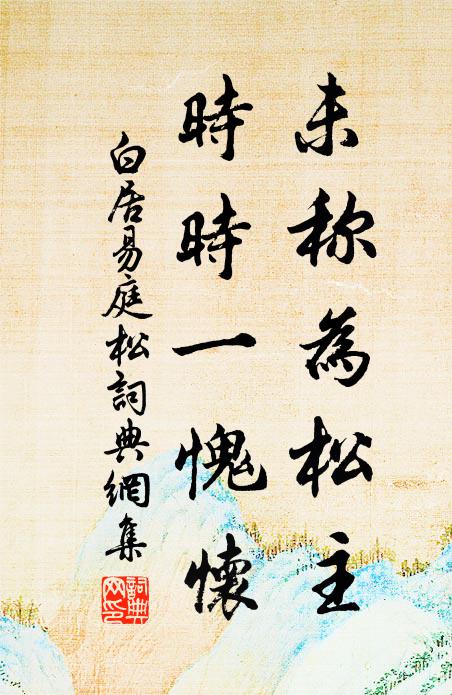 未称為松主
時時一愧懷
白居易庭松詞典網集
詞典网印